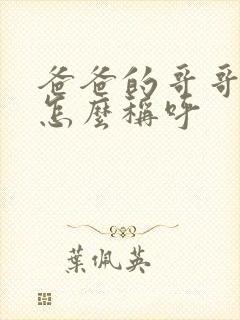 爸爸的哥哥
怎麼稱呼
葉佩英